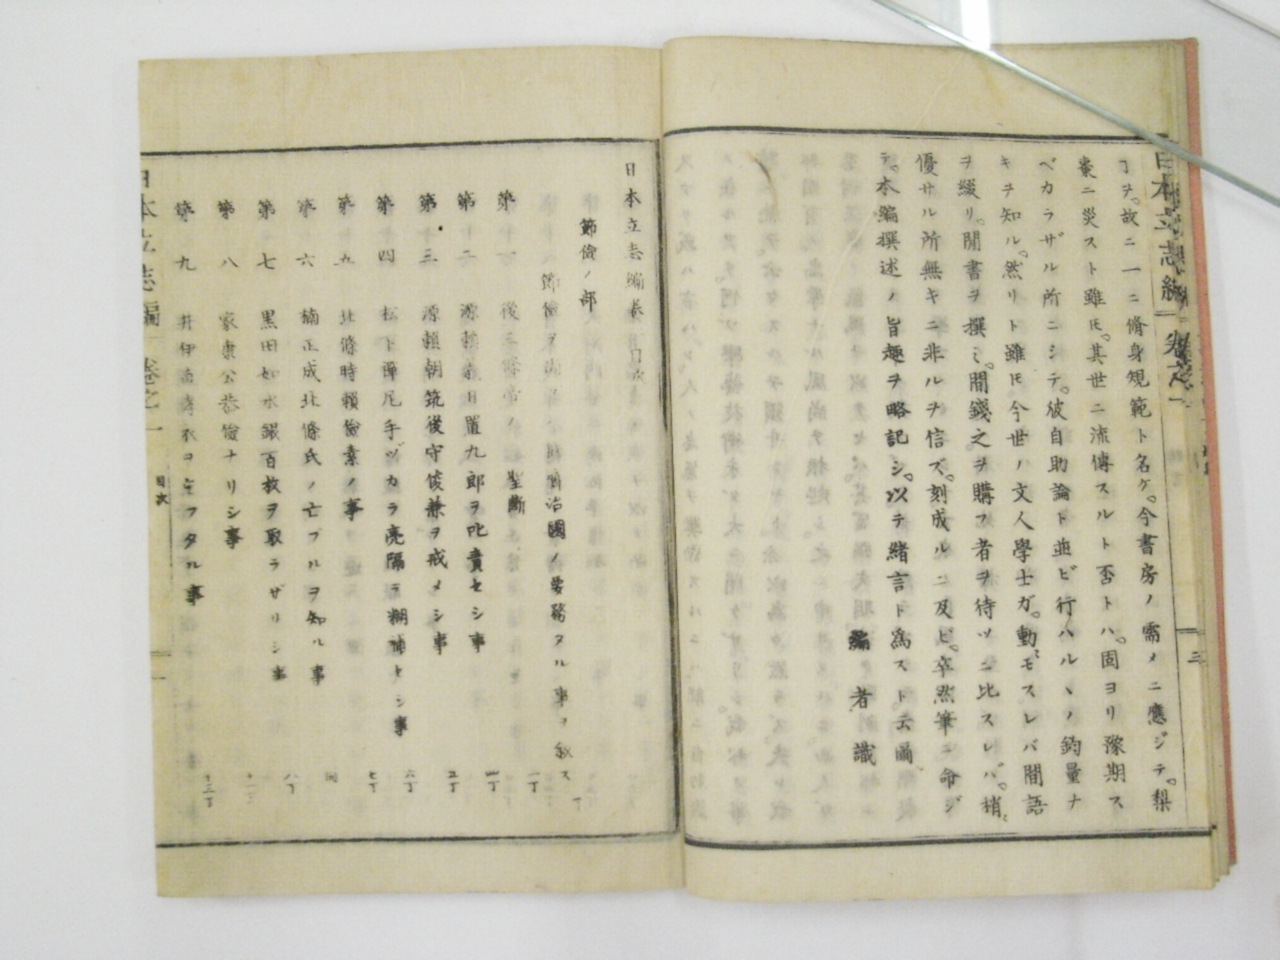 日本立志編 卷之一
三
了ヲ。故ニ一ニ脩身規範ト名ケ。今書房ノ需メニ應ジテ。梨
棗ニ災スト雖𪜈。其世ニ流傳スルト否トハ。固ヨリ豫期ス
ベカラザル所ニシテ。彼自助論ト並ビ行ハルヽノ鈞量ナ
キヲ知ル。然リト雖𪜈今世ハ文人學士ガ。動モスレバ閒語
ヲ綴リ。閒書ヲ撰ミ。閒錢之ヲ購フ者ヲ待ツニ比スレバ。稍
優サル所無キニ非ルヲ信ズ。刻成ルニ及ビ。卒然筆ニ命ジ
テ。本編撰述ノ旨趣ヲ略記シ。以テ緒言ト爲スト云爾
編者識
日本立志編卷 目次
節儉ノ部
節儉ヲ 治國ノ要務タル事ヲ叙ス
第十一 後三條帝ノ聖斷 一丁
第十二 源賴義日置九郎ヲ叱責セシ事 四丁
第十三 源賴朝筑後守俊兼ヲ戒メシ事 五丁
第十四 松下禪尼手ヅカラ亮隔ヲ糊補セシ事 六丁
第十五 北條時賴儉素ノ事 七丁
第六 楠正成北條氏ノ亡ブルヲ知ル事
第七 黒田如水銀百枚ヲ取ラザリシ事 八丁
第八 家康公恭儉ナリシ事
第九 井伊直孝 ヲ フタル事 十三丁
日本立志編 卷之一 目次
一